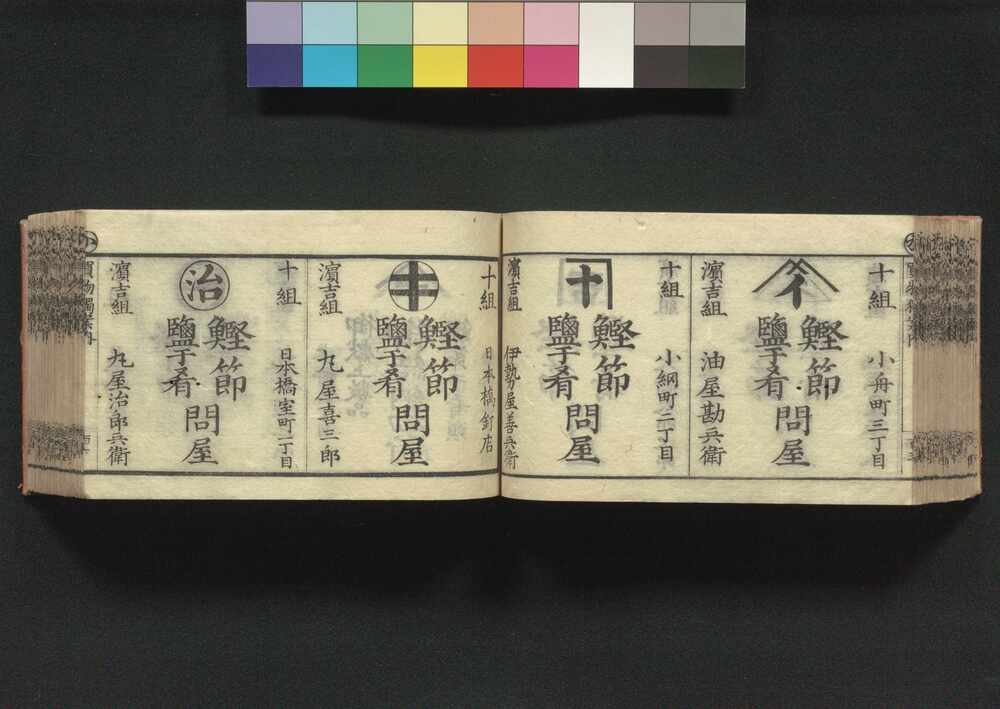 十組 小舟町三丁目
イ
鰹節
鹽干肴
問屋
濵吉組 油屋勘兵衛
十組 小網町二丁目
十
鰹節
鹽干肴
問屋
濵吉組 伊勢屋善兵衛
十組 日本橋釘店
鰹節
鹽干肴
問屋
濵吉組 丸屋喜三郎
十組 日本橋室町一丁目
治
鰹節
鹽干肴
問屋
濵吉組 丸屋治郎兵衛